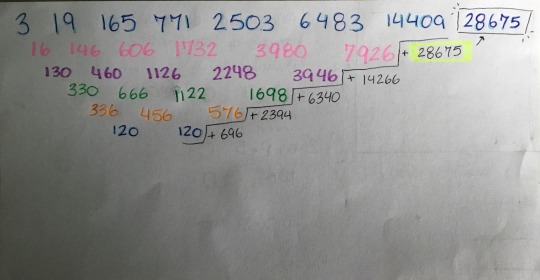 3 19 165 771 2503 6483 14409 28675
16 146 606 1732 3980 7926 + 28675
130 460 1126 2248 3946 + 14266
330 666 1122 1698 + 6340
336 456 576 + 2394
120 120 + 696